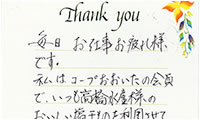 Thank you
毎日 お仕事お疲れ様
です。
私はコープおおいたの会員
で、いつも高橋水産様の
おいしい塩干ものを利用させて